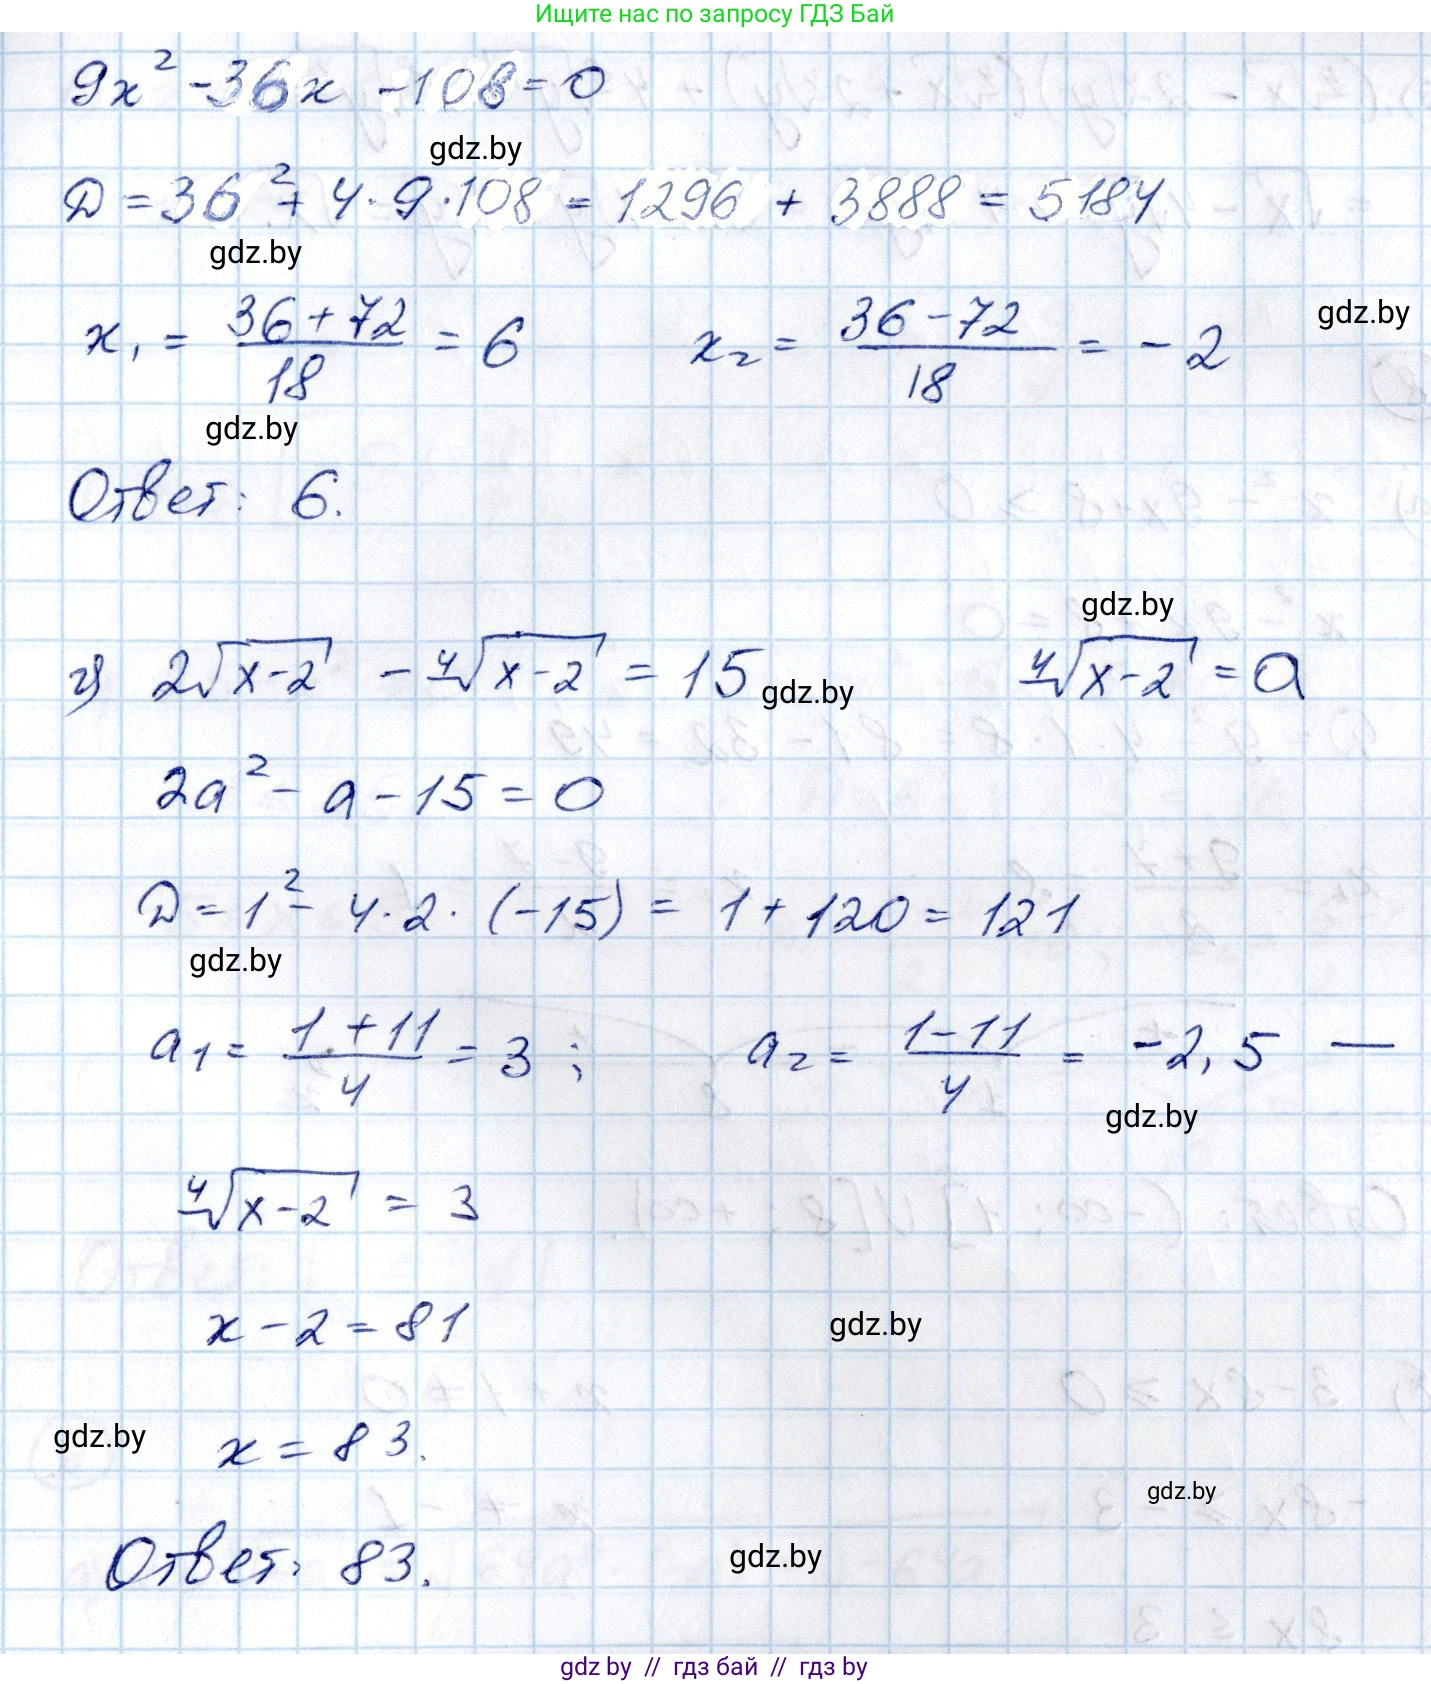 Ищите нас по запросу ГДЗ Бай
9x² - 36x - 108 = 0
gdz.by
D = 36² + 4·9·108 = 1296 + 3888 = 5184
gdz.by
x₁ = (36+72)/18 = 6 x₂ = (36-72)/18 = -2
gdz.by
gdz.by
Ответ: 6.
gdz.by
г) 2√(x-2) - ⁴√(x-2) = 15 ⁴√(x-2) = a
gdz.by
2a² - a - 15 = 0
D = 1² - 4·2·(-15) = 1 + 120 = 121
gdz.by
a₁ = (1+11)/4 = 3; a₂ = (1-11)/4 = -2,5 —
gdz.by
⁴√(x-2) = 3
x - 2 = 81
gdz.by
gdz.by
x = 83.
gdz.by
Ответ: 83.
gdz.by
gdz by // гдз бай // гдз by